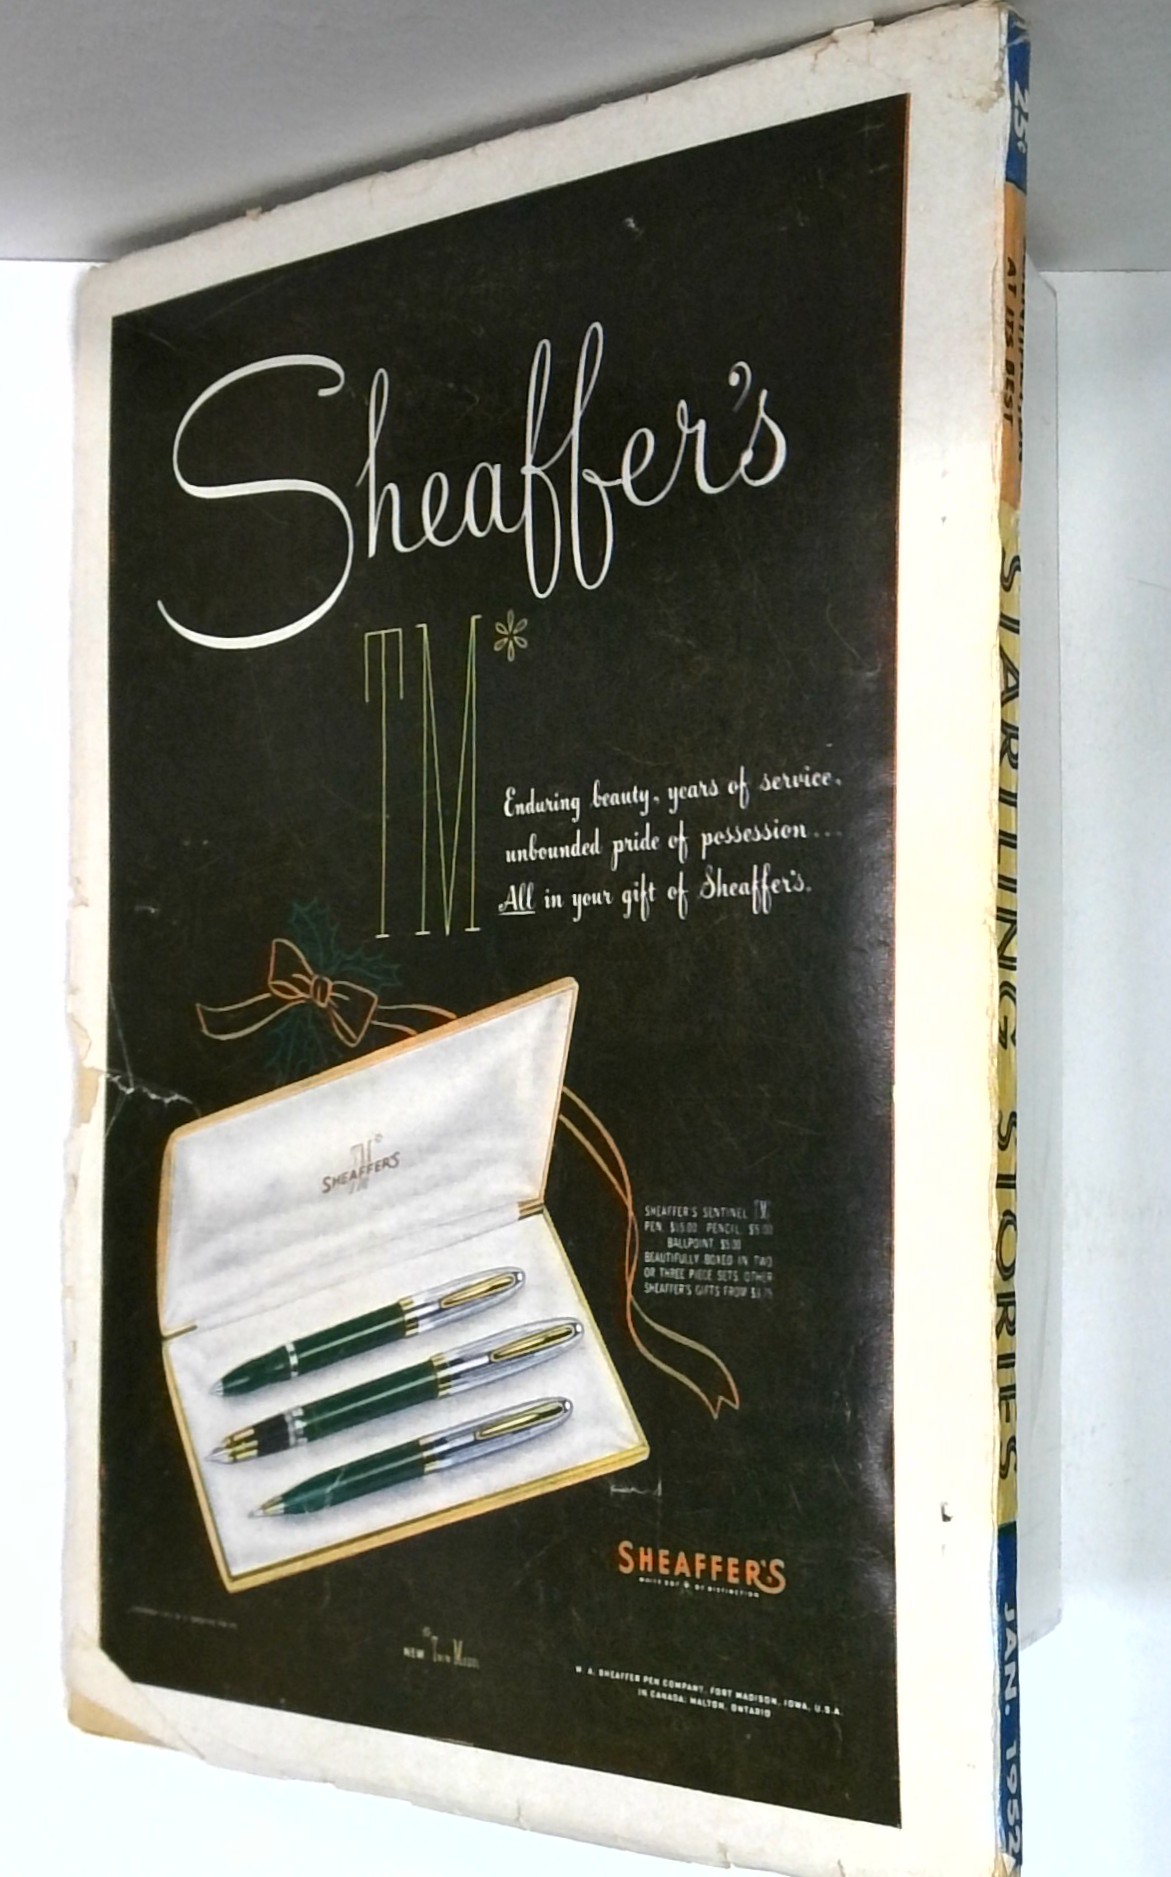 Sheaffer's
TM*
Enduring beauty, years of service,
unbounded pride of possession...
All in your gift of Sheaffer's.
SHEAFFER'S
SHEAFFER'S SENTINEL TM
PEN, $15.00 PENCIL, $5.00
BALLPOINT, $5.00
BEAUTIFULLY BOXED IN TWO
OR THREE PIECE SETS. OTHER
SHEAFFER'S GIFTS FROM
SHEAFFER'S
WHITE DOT OF DISTINCTION
NEW Thin Model
W. A. SHEAFFER PEN COMPANY, FORT MADISON, IOWA, U.S.A.
IN CANADA: MALTON, ONTARIO
25¢
AT ITS BEST
STARTLING STORIES
JAN. 1952